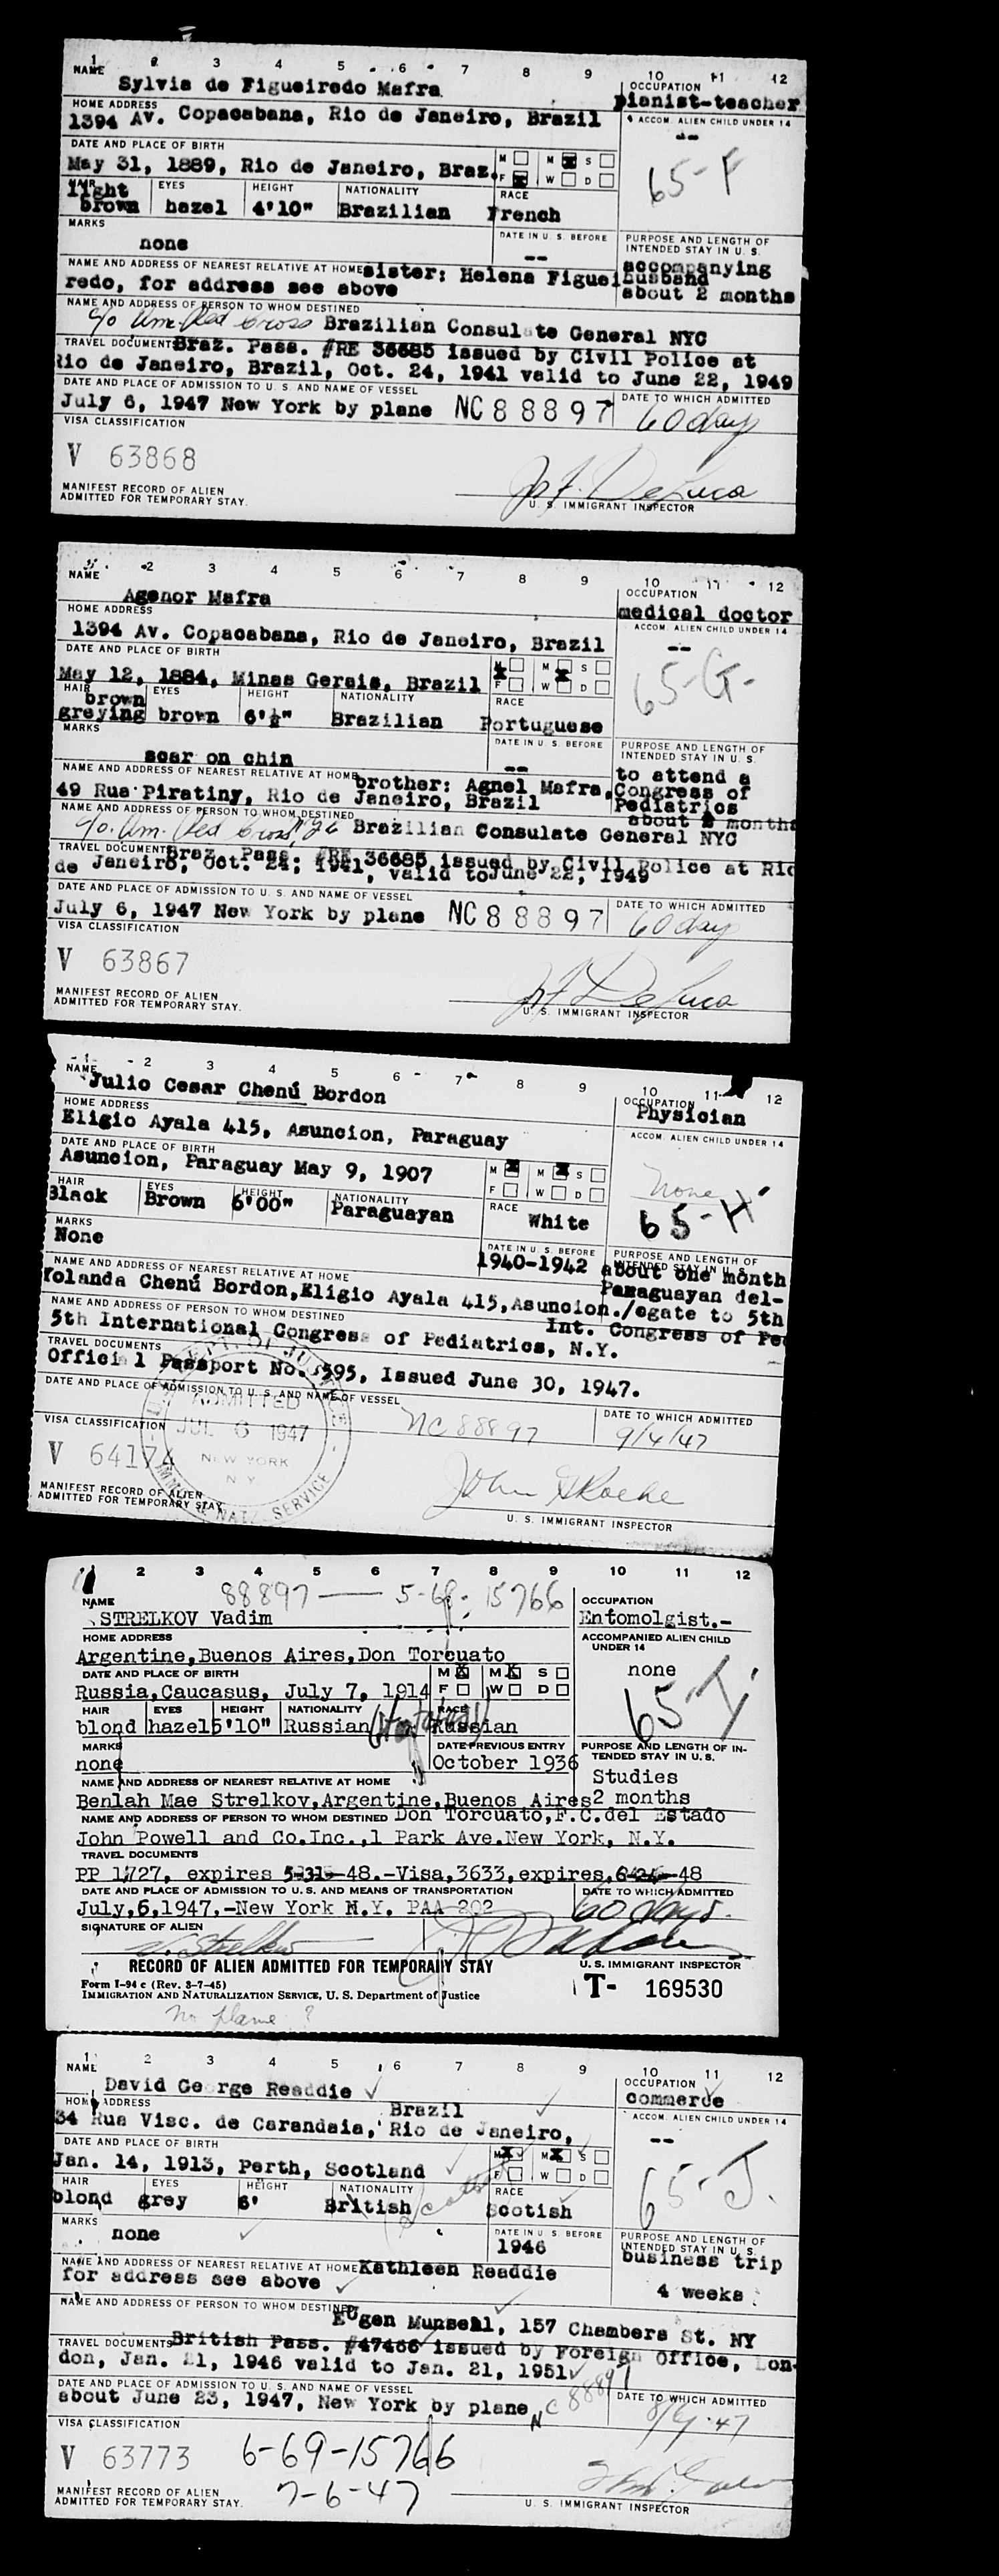 1 2 3 4 5 6 7 8 9 10 11 12
NAME
Sylvia de Figueiredo Mafra
OCCUPATION
pianist-teacher
HOME ADDRESS
1394 Av. Copacabana, Rio de Janeiro, Brazil
ACCOM. ALIEN CHILD UNDER 14
--
DATE AND PLACE OF BIRTH
May 31, 1889, Rio de Janeiro, Braz.
M M S
F W D
65-F
HAIR EYES HEIGHT NATIONALITY RACE
light
brown hazel 4'10" Brazilian French
MARKS
none
DATE IN U. S. BEFORE
--
PURPOSE AND LENGTH OF
INTENDED STAY IN U. S.
accompanying
husband
about 2 months
NAME AND ADDRESS OF NEAREST RELATIVE AT HOME sister: Helena Figuei
redo, for address see above
NAME AND ADDRESS OF PERSON TO WHOM DESTINED
c/o Am. Red Cross Brazilian Consulate General NYC
TRAVEL DOCUMENTS Braz. Pass. #RE 36685 issued by Civil Police at
Rio de Janeiro, Brazil, Oct. 24, 1941 valid to June 22, 1949
DATE AND PLACE OF ADMISSION TO U. S. AND NAME OF VESSEL
DATE TO WHICH ADMITTED
July 6, 1947 New York by plane NC 88897 60 days
VISA CLASSIFICATION
V 63868
MANIFEST RECORD OF ALIEN
ADMITTED FOR TEMPORARY STAY.
Jos F. DeLuca
U. S. IMMIGRANT INSPECTOR
2 3 4 5 6 7 8 9 10 11 12
NAME
Agenor Mafra
OCCUPATION
medical doctor
HOME ADDRESS
1394 Av. Copacabana, Rio de Janeiro, Brazil
ACCOM. ALIEN CHILD UNDER 14
--
DATE AND PLACE OF BIRTH
May 12, 1884, Minas Gerais, Brazil
M M S
F W D
65-G-
HAIR EYES HEIGHT NATIONALITY RACE
brown
greying brown 6'½" Brazilian Portuguese
MARKS
scar on chin
DATE IN U. S. BEFORE
--
PURPOSE AND LENGTH OF
INTENDED STAY IN U. S.
to attend a
Congress of
Pediatrics
about 2 months
NAME AND ADDRESS OF NEAREST RELATIVE AT HOME brother: Agnel Mafra,
49 Rua Piratiny, Rio de Janeiro, Brazil
NAME AND ADDRESS OF PERSON TO WHOM DESTINED
c/o Am. Red Cross Brazilian Consulate General NYC
TRAVEL DOCUMENTS Braz. Pass. #RE 36685 issued by Civil Police at Rio
de Janeiro, Oct. 24, 1941, valid to June 22, 1949
DATE AND PLACE OF ADMISSION TO U. S. AND NAME OF VESSEL
DATE TO WHICH ADMITTED
July 6, 1947 New York by plane NC 88897 60 days
VISA CLASSIFICATION
V 63867
MANIFEST RECORD OF ALIEN
ADMITTED FOR TEMPORARY STAY.
Jos F. DeLuca
U. S. IMMIGRANT INSPECTOR
1 2 3 4 5 6 7 8 9 10 11 12
NAME
Julio Cesar Chenú Bordon
OCCUPATION
Physician
HOME ADDRESS
Eligio Ayala 415, Asuncion, Paraguay
ACCOM. ALIEN CHILD UNDER 14
None
DATE AND PLACE OF BIRTH
Asuncion, Paraguay May 9, 1907
M M S
F W D
65-H
HAIR EYES HEIGHT NATIONALITY RACE
Black Brown 6'00" Paraguayan White
MARKS
None
DATE IN U. S. BEFORE
1940-1942
PURPOSE AND LENGTH OF
INTENDED STAY IN U. S.
about one month
Paraguayan del-
egate to 5th
Int. Congress of Pe
NAME AND ADDRESS OF NEAREST RELATIVE AT HOME
Yolanda Chenú Bordon, Eligio Ayala 415, Asuncion.
NAME AND ADDRESS OF PERSON TO WHOM DESTINED
5th International Congress of Pediatrics, N.Y.
TRAVEL DOCUMENTS
Official Passport No. 1595, Issued June 30, 1947.
DATE AND PLACE OF ADMISSION TO U. S. AND NAME OF VESSEL
ADMITTED
JUL 6 1947
NEW YORK
N. Y.
NC 88897
DATE TO WHICH ADMITTED
9/4/47
VISA CLASSIFICATION
V 64174
MANIFEST RECORD OF ALIEN
ADMITTED FOR TEMPORARY STAY.
John Roche
U. S. IMMIGRANT INSPECTOR
2 3 4 5 6 7 8 9 10 11 12
88897 — 5-69-15766
NAME
STRELKOV Vadim
OCCUPATION
Entomolgist.-
HOME ADDRESS
Argentine, Buenos Aires, Don Torcuato
ACCOMPANIED ALIEN CHILD
UNDER 14
none
DATE AND PLACE OF BIRTH
Russia, Caucasus, July 7, 1914
M M S
F W D
65-I
HAIR EYES HEIGHT NATIONALITY RACE
blond hazel 5'10" Russian Russian
MARKS
none
DATE PREVIOUS ENTRY
October 1936
PURPOSE AND LENGTH OF IN-
TENDED STAY IN U. S.
Studies
2 months
NAME AND ADDRESS OF NEAREST RELATIVE AT HOME
Benlah Mae Strelkov, Argentine, Buenos Aires
NAME AND ADDRESS OF PERSON TO WHOM DESTINED Don Torcuato, F.C. del Estado
John Powell and Co. Inc., 1 Park Ave. New York, N.Y.
TRAVEL DOCUMENTS
PP 1727, expires 5-31-48.-Visa, 3633, expires, 6-24-48
DATE AND PLACE OF ADMISSION TO U. S. AND MEANS OF TRANSPORTATION
DATE TO WHICH ADMITTED
July, 6, 1947,-New York N.Y. PAA 202
60 days.
SIGNATURE OF ALIEN
V. Strelkov
RECORD OF ALIEN ADMITTED FOR TEMPORARY STAY
U. S. IMMIGRANT INSPECTOR
Form I-94 c (Rev. 3-7-45)
IMMIGRATION AND NATURALIZATION SERVICE, U. S. Department of Justice
T- 169530
No plane ?
1 2 3 4 5 6 7 8 9 10 11 12
NAME
David George Readdie
OCCUPATION
commerce
HOME ADDRESS
Brazil
34 Rua Visc. de Carandaia, Rio de Janeiro,
ACCOM. ALIEN CHILD UNDER 14
--
DATE AND PLACE OF BIRTH
Jan. 14, 1913, Perth, Scotland
M M S
F W D
65-J.
HAIR EYES HEIGHT NATIONALITY RACE
blond grey 6' British Scotish
MARKS
none
DATE IN U. S. BEFORE
1946
PURPOSE AND LENGTH OF
INTENDED STAY IN U. S.
business trip
4 weeks
NAME AND ADDRESS OF NEAREST RELATIVE AT HOME Kathleen Readdie
for address see above
NAME AND ADDRESS OF PERSON TO WHOM DESTINED
Eugen Munsell, 157 Chambers St. NY
TRAVEL DOCUMENTS British Pass. #47466 issued by Foreign Office, Lon-
don, Jan. 21, 1946 valid to Jan. 21, 1951
DATE AND PLACE OF ADMISSION TO U. S. AND NAME OF VESSEL
DATE TO WHICH ADMITTED
about June 23, 1947, New York by plane NC 88897
VISA CLASSIFICATION
V 63773 6-69-15766
7-6-47
MANIFEST RECORD OF ALIEN
ADMITTED FOR TEMPORARY STAY.
U. S. IMMIGRANT INSPECTOR